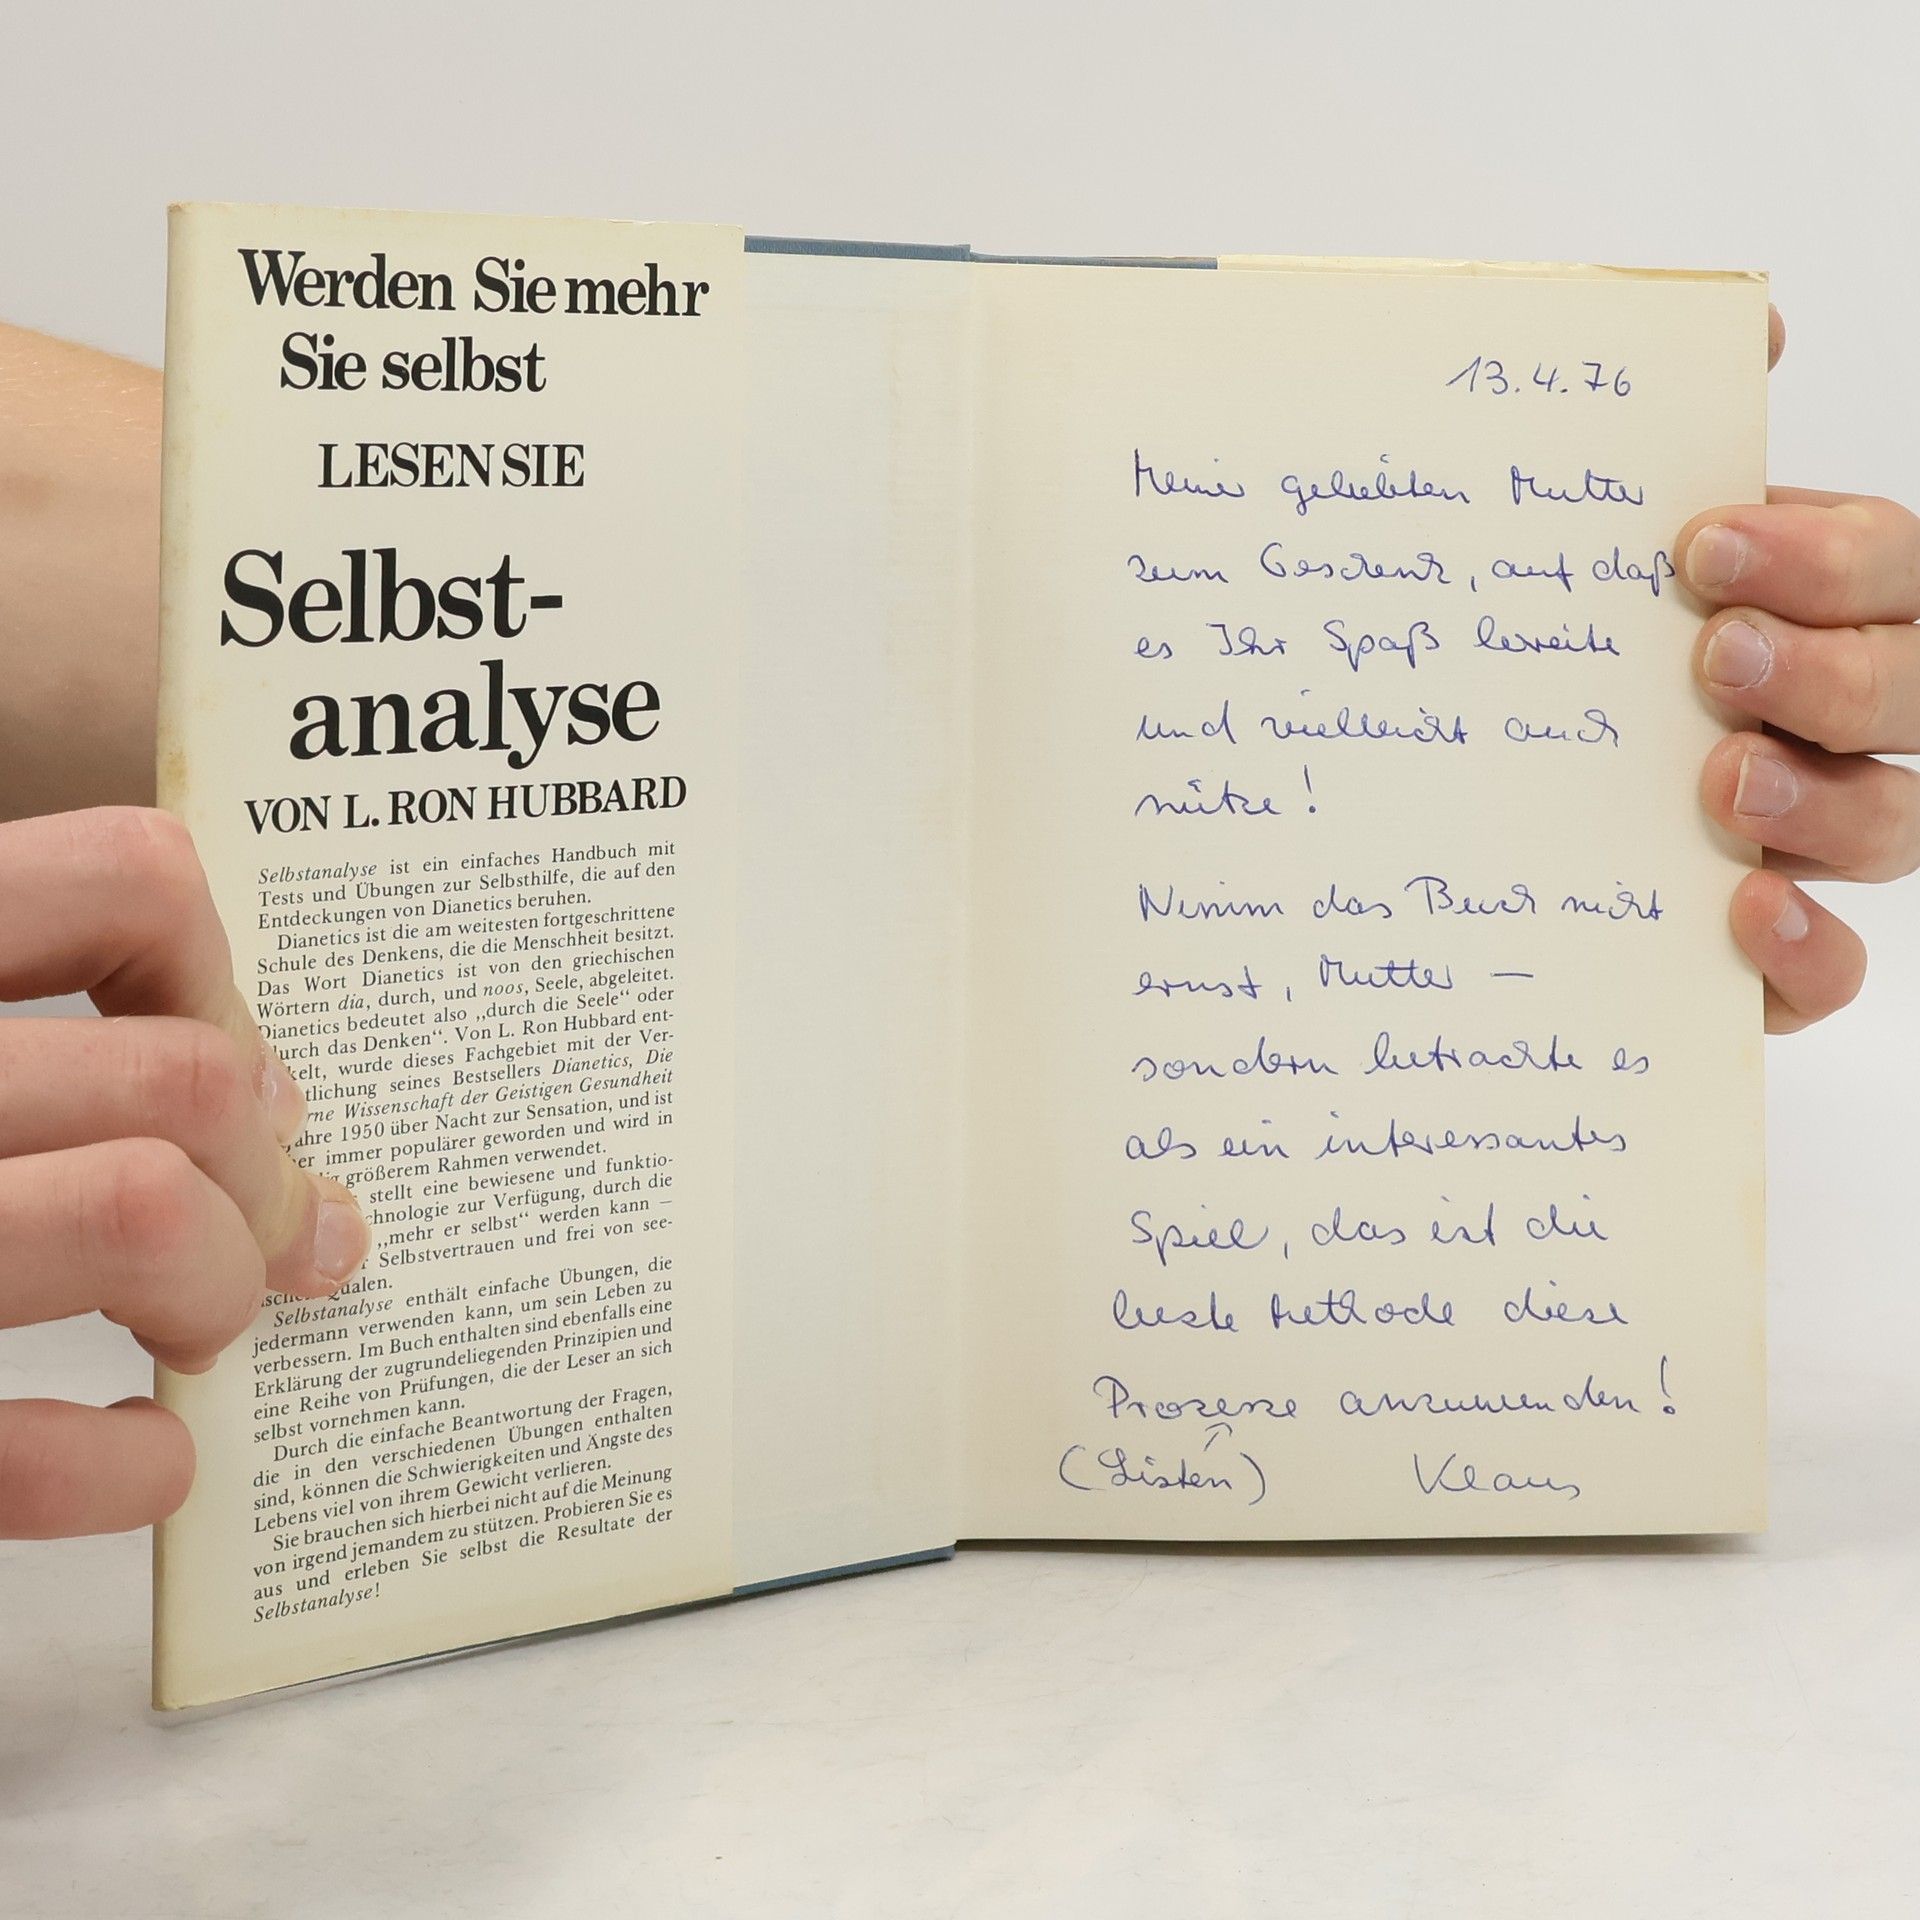 Werden Sie mehr
Sie selbst
LESEN SIE
Selbst-
analyse
VON L. RON HUBBARD
Selbstanalyse ist ein einfaches Handbuch mit
Tests und Übungen zur Selbsthilfe, die auf den
Entdeckungen von Dianetics beruhen.
Dianetics ist die am weitesten fortgeschrittene
Schule des Denkens, die die Menschheit besitzt.
Das Wort Dianetics ist von den griechischen
Wörtern dia, durch, und noos, Seele, abgeleitet.
Dianetics bedeutet also „durch die Seele“ oder
urch das Denken“. Von L. Ron Hubbard ent-
kelt, wurde dieses Fachgebiet mit der Ver-
tlichung seines Bestsellers Dianetics, Die
rne Wissenschaft der Geistigen Gesundheit
Jahre 1950 über Nacht zur Sensation, und ist
er immer populärer geworden und wird in
größerem Rahmen verwendet.
stellt eine bewiesene und funktio-
chnologie zur Verfügung, durch die
„mehr er selbst“ werden kann –
r Selbstvertrauen und frei von see-
ischen Qualen.
Selbstanalyse enthält einfache Übungen, die
jedermann verwenden kann, um sein Leben zu
verbessern. Im Buch enthalten sind ebenfalls eine
Erklärung der zugrundeliegenden Prinzipien und
eine Reihe von Prüfungen, die der Leser an sich
selbst vornehmen kann.
Durch die einfache Beantwortung der Fragen,
die in den verschiedenen Übungen enthalten
sind, können die Schwierigkeiten und Ängste des
Lebens viel von ihrem Gewicht verlieren.
Sie brauchen sich hierbei nicht auf die Meinung
von irgend jemandem zu stützen. Probieren Sie es
aus und erleben Sie selbst die Resultate der
Selbstanalyse!
13.4.76
Meiner geliebten Mutter
zum Geschenk, auf daß
es Ihr Spaß bereite
und vielleicht auch
nütze!
Nimm das Buch nicht
ernst, Mutter —
sondern betrachte es
als ein interessantes
Spiel, das ist die
beste Methode diese
Prozesse anzuwenden!
(Listen) Klaus